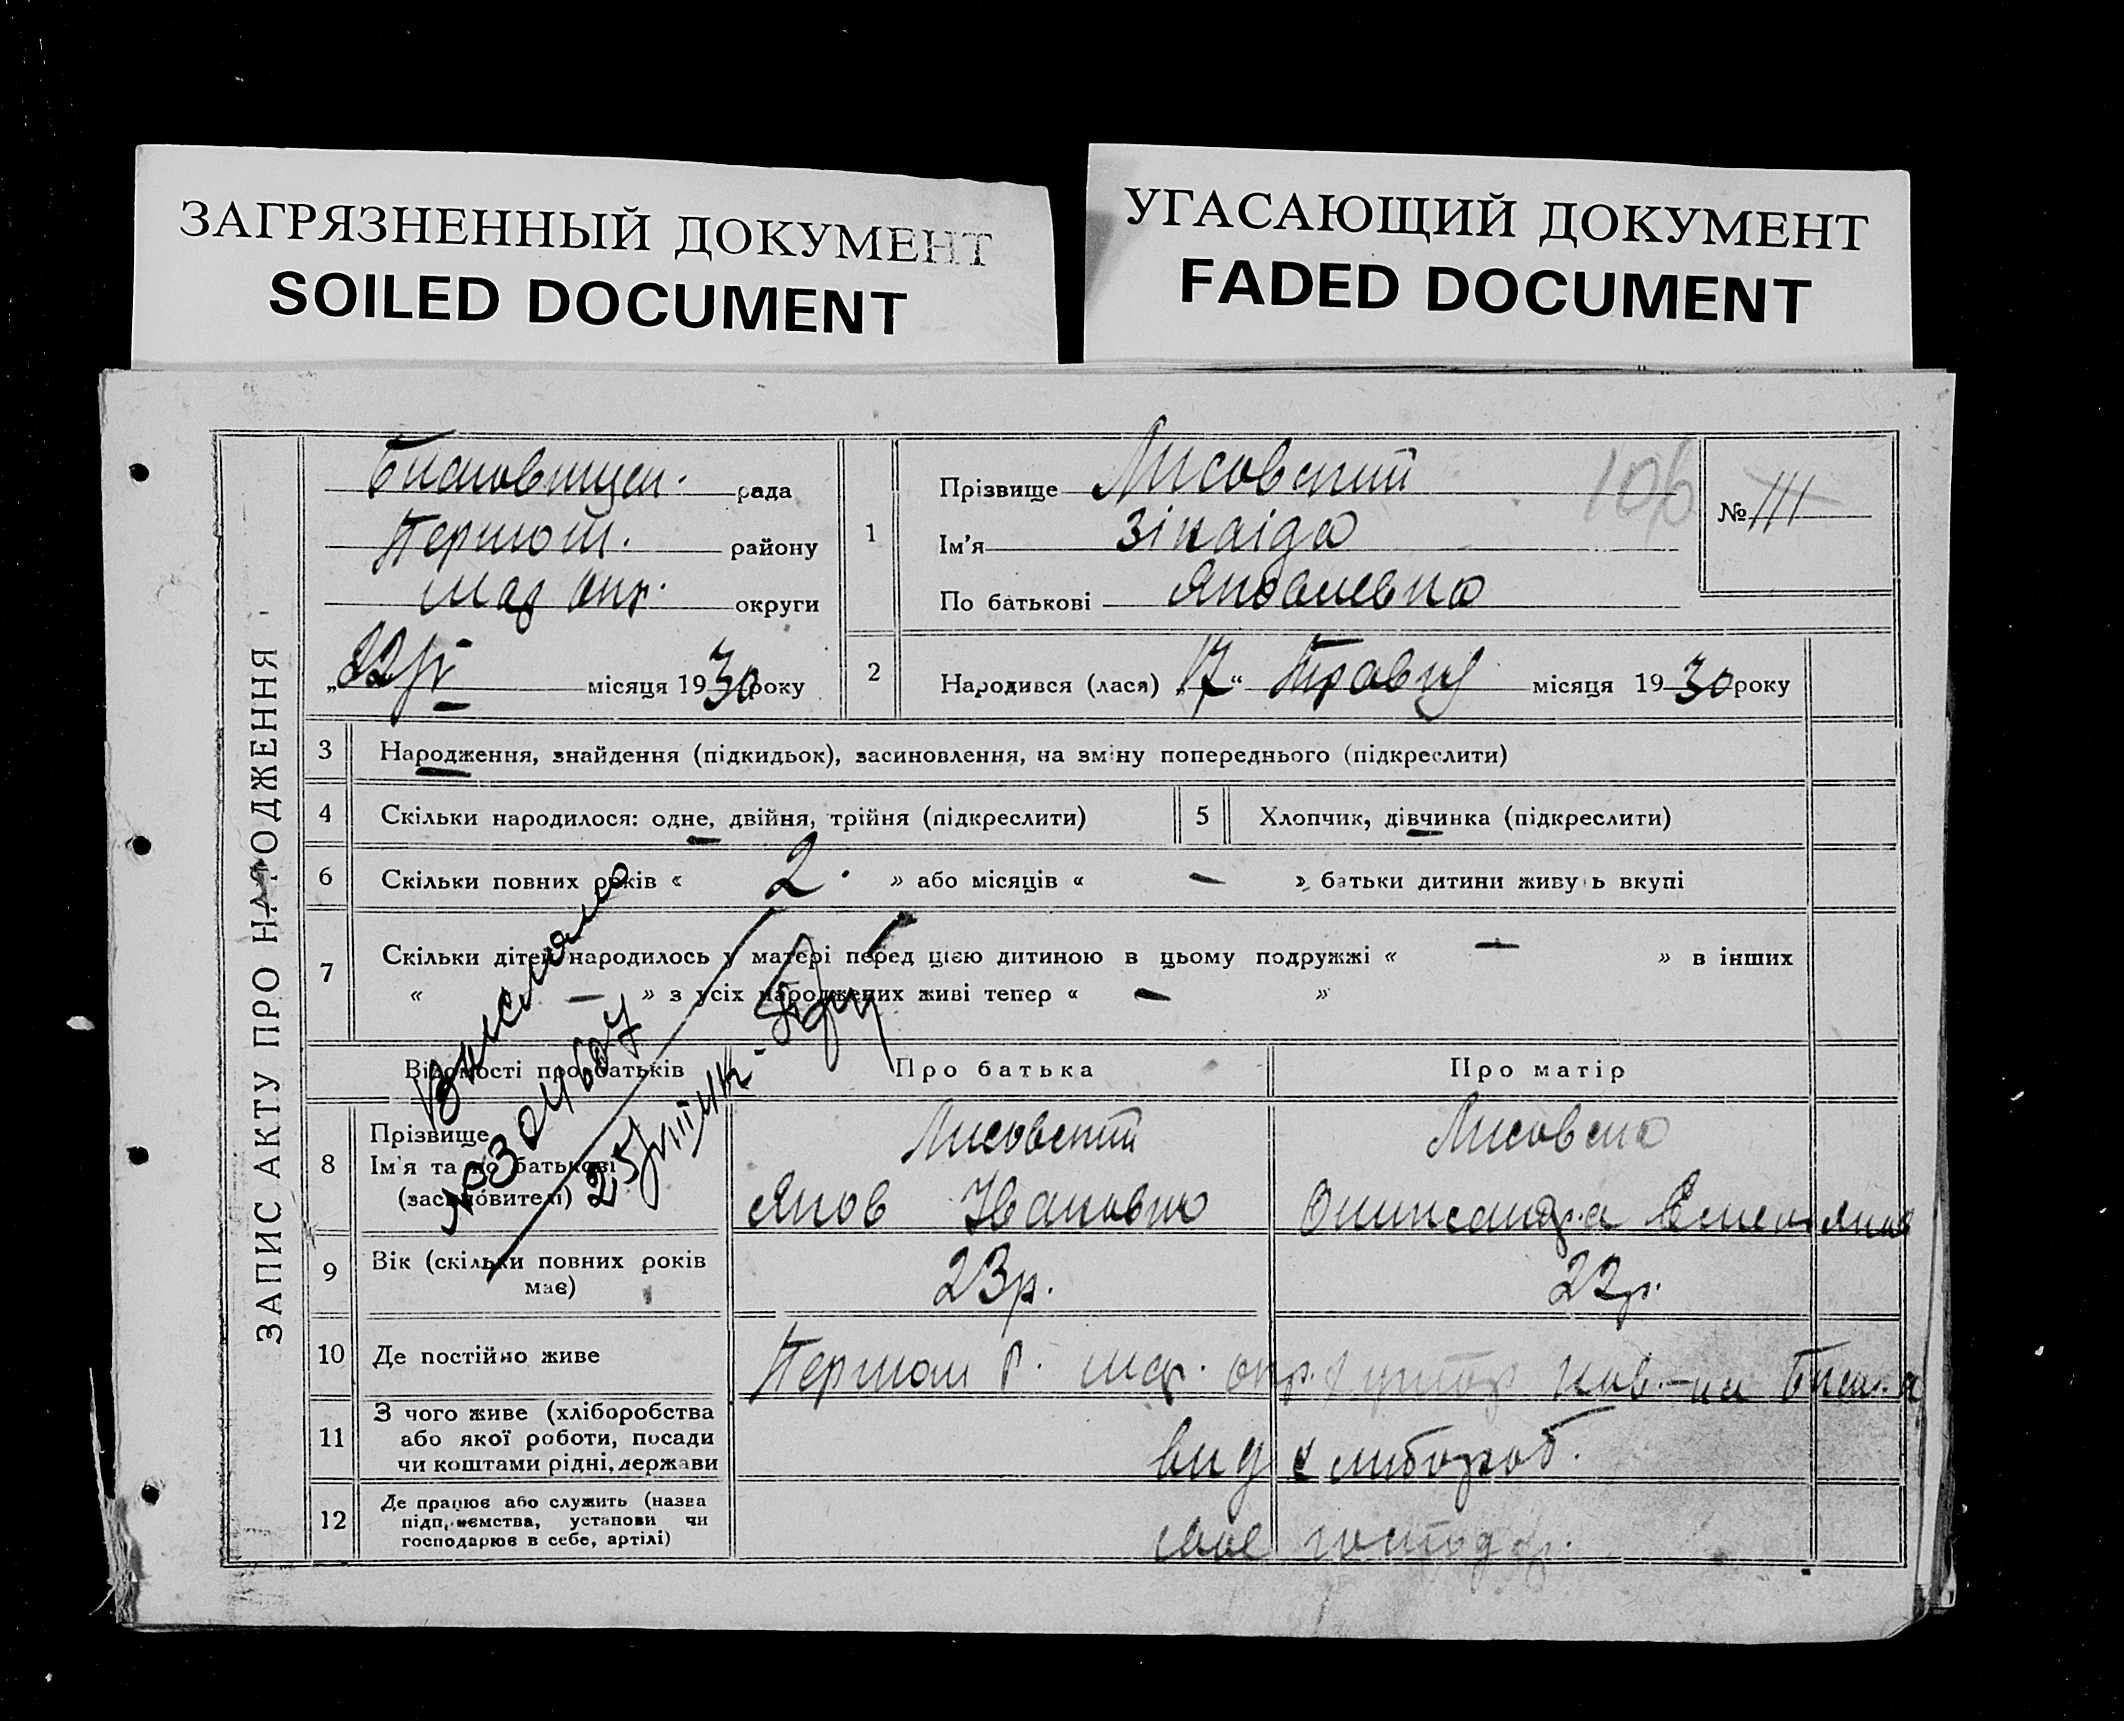 ЗАГРЯЗНЕННЫЙ ДОКУМЕНТ
SOILED DOCUMENT
УГАСАЮЩИЙ ДОКУМЕНТ
FADED DOCUMENT
ЗАПИС АКТУ ПРО НАРОДЖЕННЯ
рада
району
округи
місяця 1930 року
1
Прізвище Лисовский
Ім'я Зінаіда
По батькові Яковлевна
106
№ 111
2
Народився (лася) 17 “ Травня місяця 1930 року
3 Народження, знайдення (підкидьок), засиновлення, на зміну попереднього (підкреслити)
4 Скільки народилося: одне, двійня, трійня (підкреслити)
5 Хлопчик, дівчинка (підкреслити)
6 Скільки повних років « 2. » або місяців « — » батьки дитини живуть вкупі
7 Скільки дітей народилось у матері перед цією дитиною в цьому подружжі « — » в інших
« — » з усіх народжених живі тепер « — »
Відомості про батьків
Про батька
Про матір
8 Прізвище
Ім'я та по батькові
(засиновителі)
Лисовский
Яков Іванович
Лисовска
9 Вік (скільки повних років
має)
23р.
22р.
10 Де постійно живе
11 З чого живе (хліборобства
або якої роботи, посади
чи коштами рідні, держави
вид хлибороб.
12 Де працює або служить (назва
підприємства, установи чи
господарює в себе, артілі)
свое господар.